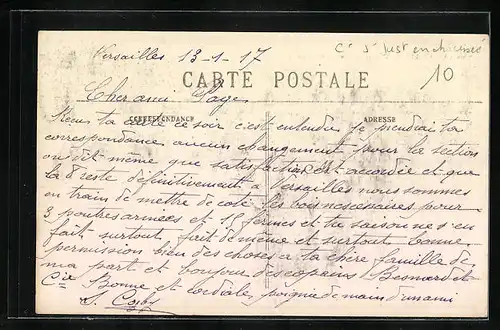 Versailles 13-1-17
Ct St Just en chaussée
10
CARTE POSTALE
Cher ami Page
CORRESPONDANCE
ADRESSE
Reçu ta carte ce soir c'est entendu je prendrai ta
correspondance aucun changement pour la section
on dit même que satisfaction est accordée et que
la T reste définitivement à Versailles nous sommes
en train de mettre de coté les bois nécessaires pour
3 poutres armées et 15 fermes et tu sais on n'en
fait surtout fait de même et surtout bonne
permission bien des choses a ta chère famille de
ma part et bonjour des copains Besnard et
Cie Bonne et cordiale poignée de main d'un ami